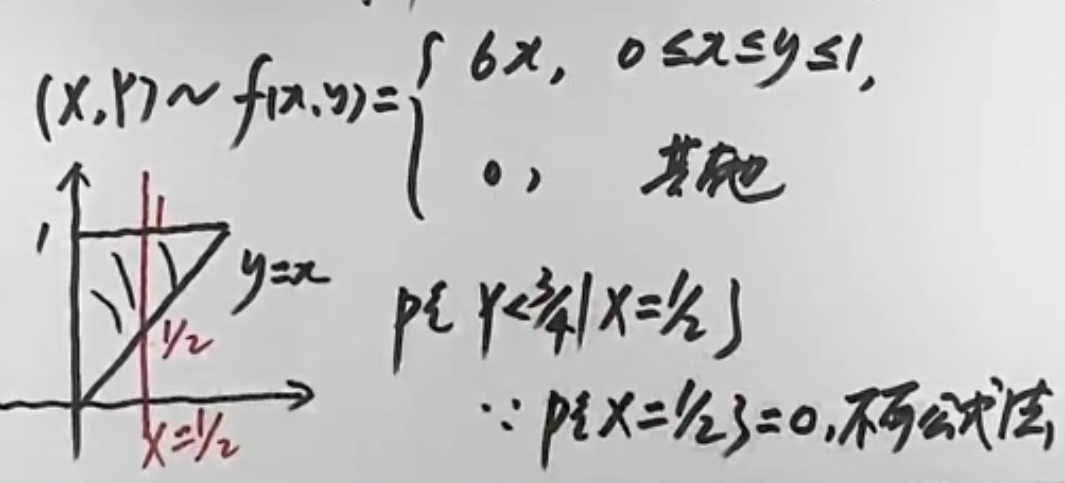 (X,Y)~f(x,y)={ 6x, 0≤x≤y≤1,
0, 其他
1
1
y=x
1/2
X=1/2
P{Y<3/4|X=1/2}
∵P{X=1/2}=0,不可公式法,